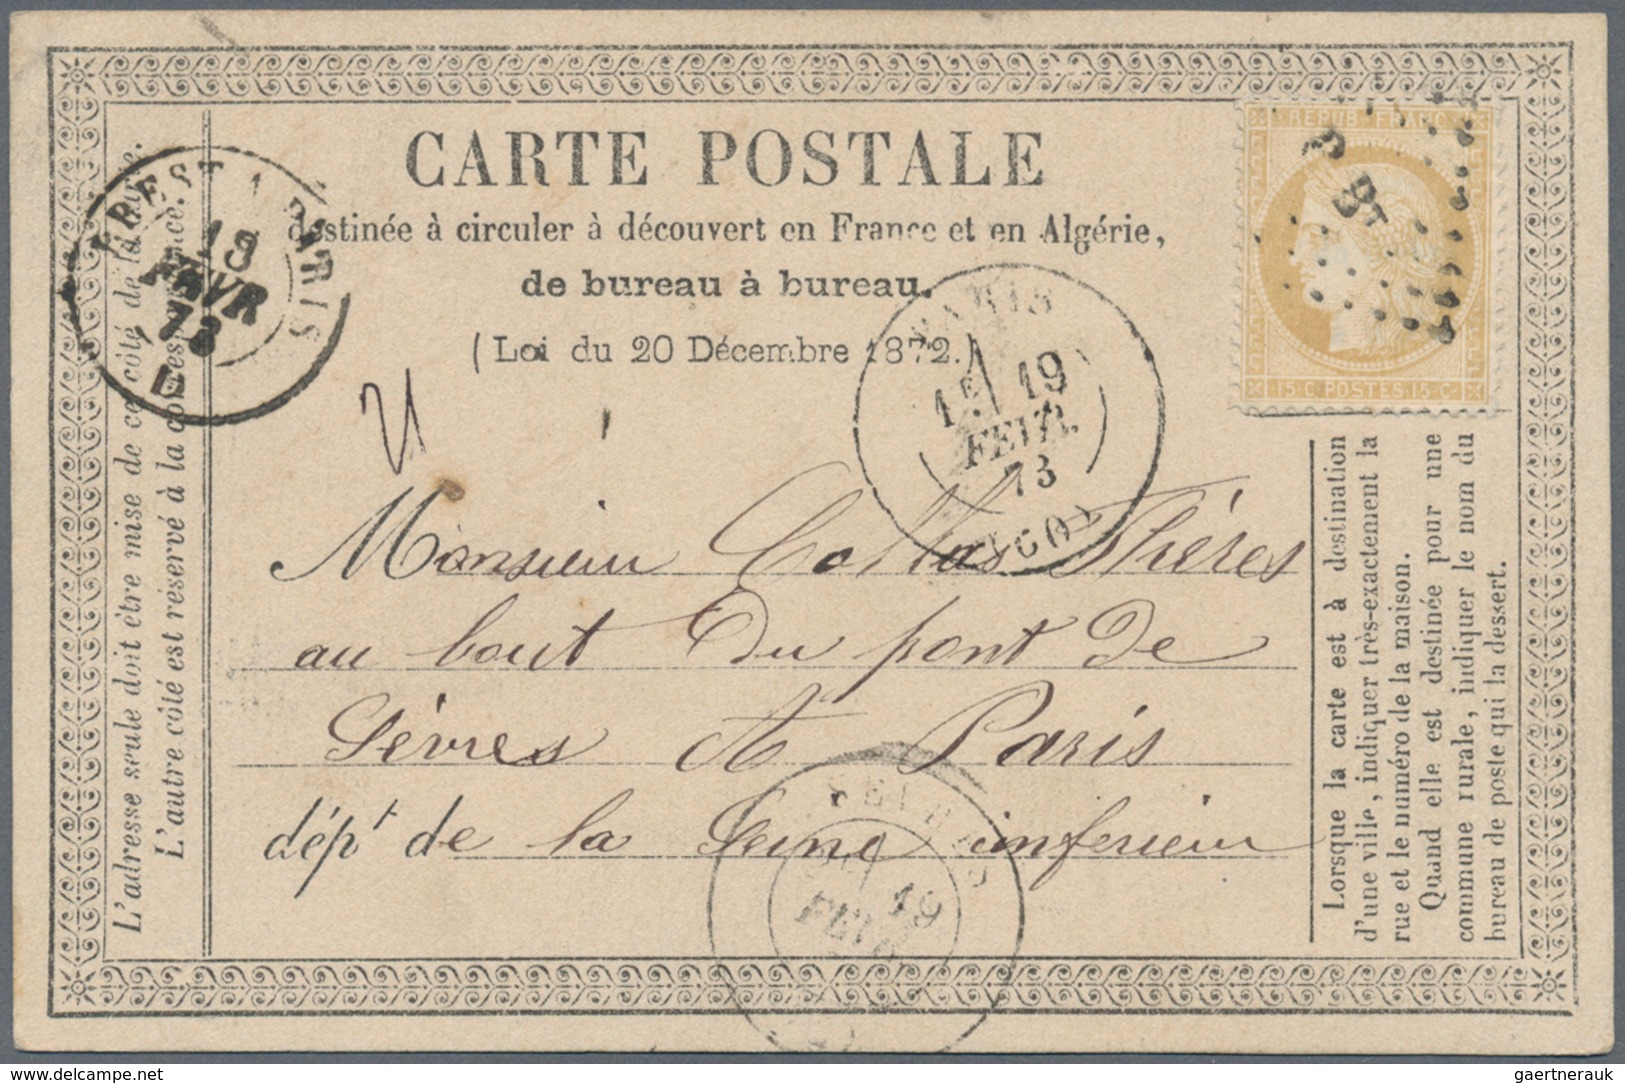 CARTE POSTALE
destinée à circuler à découvert en France et en Algérie,
de bureau à bureau.
(Loi du 20 Décembre 1872.)
L'adresse seule doit être mise de ce côté de la carte.
L'autre côté est réservé à la correspondance.
BREST A PARIS
19
FEVR
73
REPUB. FRANC.
15 C. POSTES 15 C.
PARIS
19
FEVR.
73
Monsieur Collas Thérés
au bout du pont de
Sèvres A Paris
dépt de la Seine inferieur
19
FEVR
Lorsque la carte est à destination
d'une ville, indiquer très-exactement la
rue et le numéro de la maison.
Quand elle est destinée pour une
commune rurale, indiquer le nom du
bureau de poste qui la dessert.
www.delcampe.net
gaertnerauk